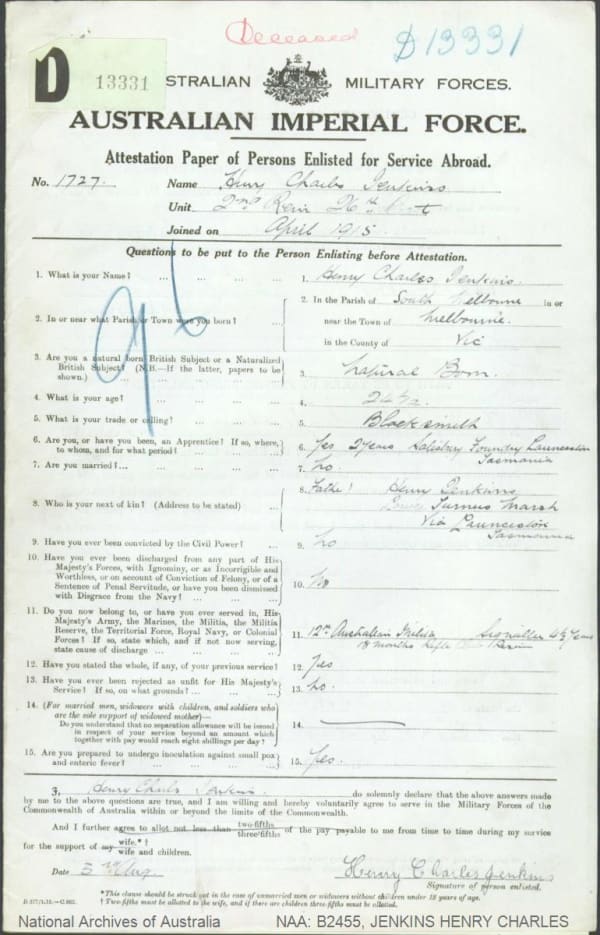 Deceased
D13331
D 13331
STRALIAN MILITARY FORCES.
AUSTRALIAN IMPERIAL FORCE.
Attestation Paper of Persons Enlisted for Service Abroad.
No. 1727. Name Henry Charles Jenkins
Unit 2nd Rein 26th
Joined on April 1915
Questions to be put to the Person Enlisting before Attestation.
1. What is your Name? ... ... ... ... 1. Henry Charles Jenkins.
2. In or near what Parish or Town were you born? ... 2. In the Parish of South Melbourne in or
near the Town of Melbourne.
in the County of Vic
3. Are you a natural born British Subject or a Naturalized
British Subject? (N.B.—If the latter, papers to be
shown.) ... ... ... ... 3. Natural Born.
4. What is your age? ... ... ... ... 4.
5. What is your trade or calling? ... ... ... 5. Blacksmith
6. Are you, or have you been, an Apprentice? If so, where,
to whom, and for what period? ... ... ... 6. Yes 2 years Salisbury Foundry Launceston
Tasmania
7. Are you married? ... ... ... ... 7. No.
8. Who is your next of kin? (Address to be stated) ... 8. Father Henry Jenkins
Marsh
Via Launceston
Tasmania
9. Have you ever been convicted by the Civil Power? ... 9. No
10. Have you ever been discharged from any part of His
Majesty's Forces, with Ignominy, or as Incorrigible and
Worthless, or on account of Conviction of Felony, or of a
Sentence of Penal Servitude, or have you been dismissed
with Disgrace from the Navy? ... ... ... 10. No.
11. Do you now belong to, or have you ever served in, His
Majesty's Army, the Marines, the Militia, the Militia
Reserve, the Territorial Force, Royal Navy, or Colonial
Forces? If so, state which, and if not now serving,
state cause of discharge ... ... ... 11. 12th Australian Signaller 4½ years
months Rifle
12. Have you stated the whole, if any, of your previous service? 12. Yes
13. Have you ever been rejected as unfit for His Majesty's
Service? If so, on what grounds? ... ... ... 13. No.
14. (For married men, widowers with children, and soldiers who
are the sole support of widowed mother)—
Do you understand that no separation allowance will be issued
in respect of your service beyond an amount which
together with pay would reach eight shillings per day? 14.
15. Are you prepared to undergo inoculation against small pox
and enteric fever? ... ... ... ... 15. Yes.
I, Henry Charles Jenkins. do solemnly declare that the above answers made
by me to the above questions are true, and I am willing and hereby voluntarily agree to serve in the Military Forces of the
Commonwealth of Australia within or beyond the limits of the Commonwealth.
And I further agree to allot not less than two-fifths three-fifths of the pay payable to me from time to time during my service
for the support of my wife.*† wife and children.
Date 3rd Aug Henry Charles Jenkins
Signature of person enlisted.
*This clause should be struck out in the case of unmarried men or widowers without children under 18 years of age.
† Two-fifths must be allotted to the wife, and if there are children three-fifths must be allotted.
National Archives of Australia NAA: B2455, JENKINS HENRY CHARLES